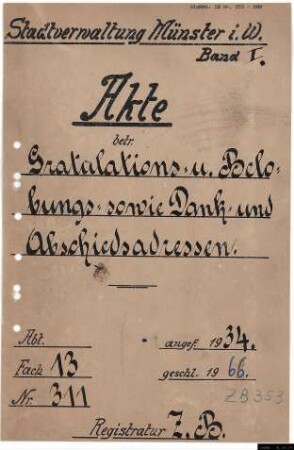 Stadtverwaltung Münster i. W.
Band I.
Akte
betr.
Gratalations- u. Belo-
bungs- sowie Dank- und
Abschiedsadressen.
Abt. angef. 1934.
Fach 13 geschl. 1966.
Nr. 311
ZB 353
Registratur Z. B.